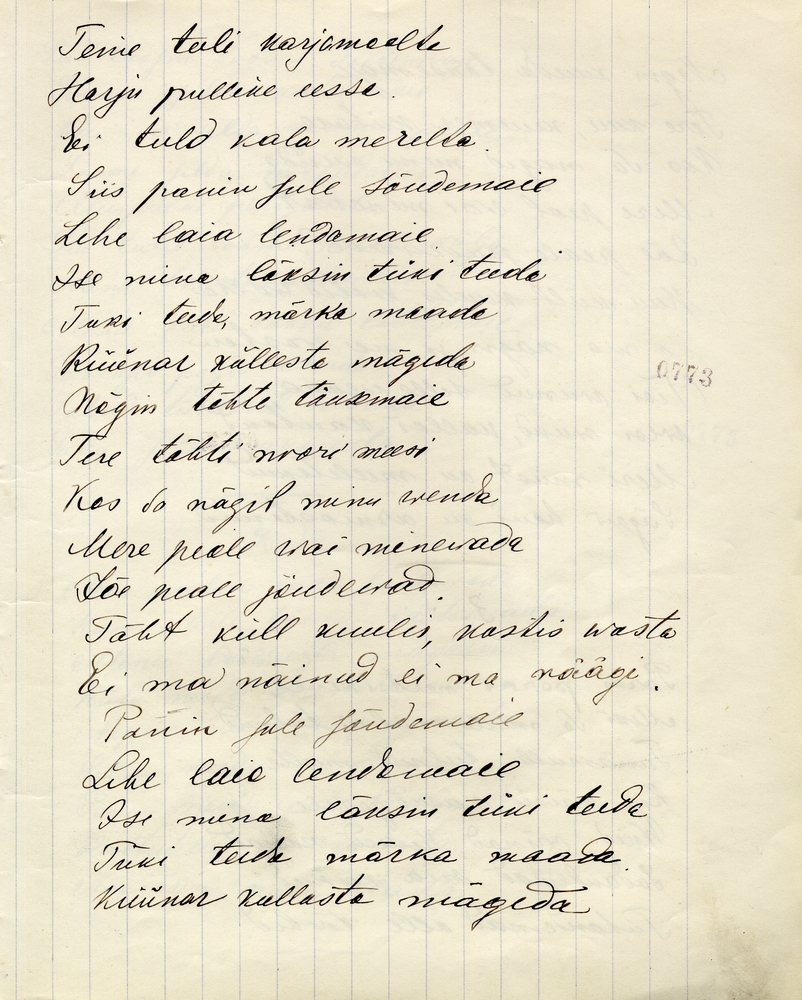 Teine tuli karjamaalta
Harju pulline eessa.
Ei tuld kala merelta.
Siis panin sule sõudemaie
Lehe laia lendamaie
Ise mina läksin tüki teeda
Tüki teeda, märka maada
Küünar küllesta mägeda
Nägin tähte tõusemaie
Tere tähti noori meesi
Kas sa nägid minu wenda
Mere peale wai minewada
Jõe peale jõudewad.
Täht küll kuulis, kostis wasta
Ei ma näinud ei ma näägi.
Panin sule sõudemaie
Lehe laia lendamaie
Ise mina läksin tüki teeda
Tüki teeda märka maada
Küünar kullasta mägeda
0773